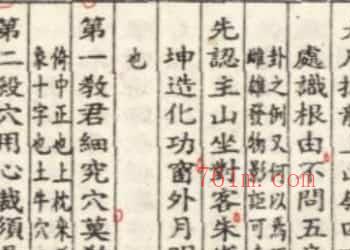 處識根由不問五
卦之例又何以爲
雌雄發物影詎可
先認主山坐對客朱
坤造化功窗外月
也
第一教君細究穴莫
倚中正也上枕來
象十字也土牛穴
第二殺穴用心裁須
761m.com